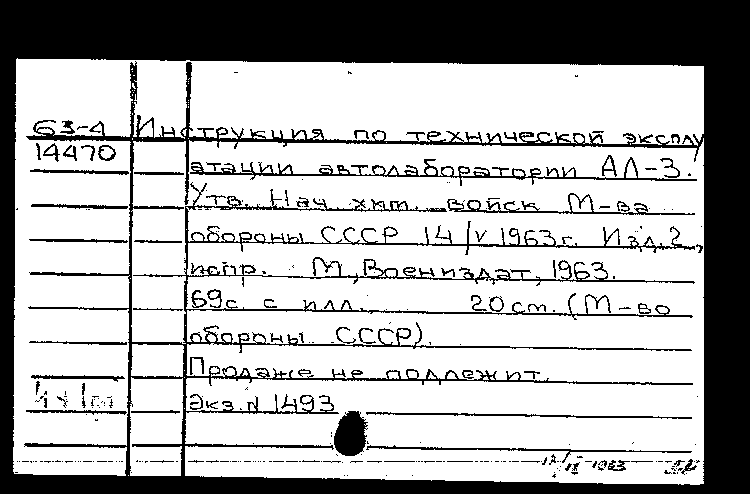 63-4 Инструкция по технической эксплу
14470
атации автолаборатории АЛ-3.
Утв. Нач. хим. войск М-ва
обороны СССР 14/V 1963г. Изд. 2,
испр. М., Воениздат, 1963.
69с. с илл. 20 см. (М-во
обороны СССР).
Продаже не подлежит.
Экз. N 1493